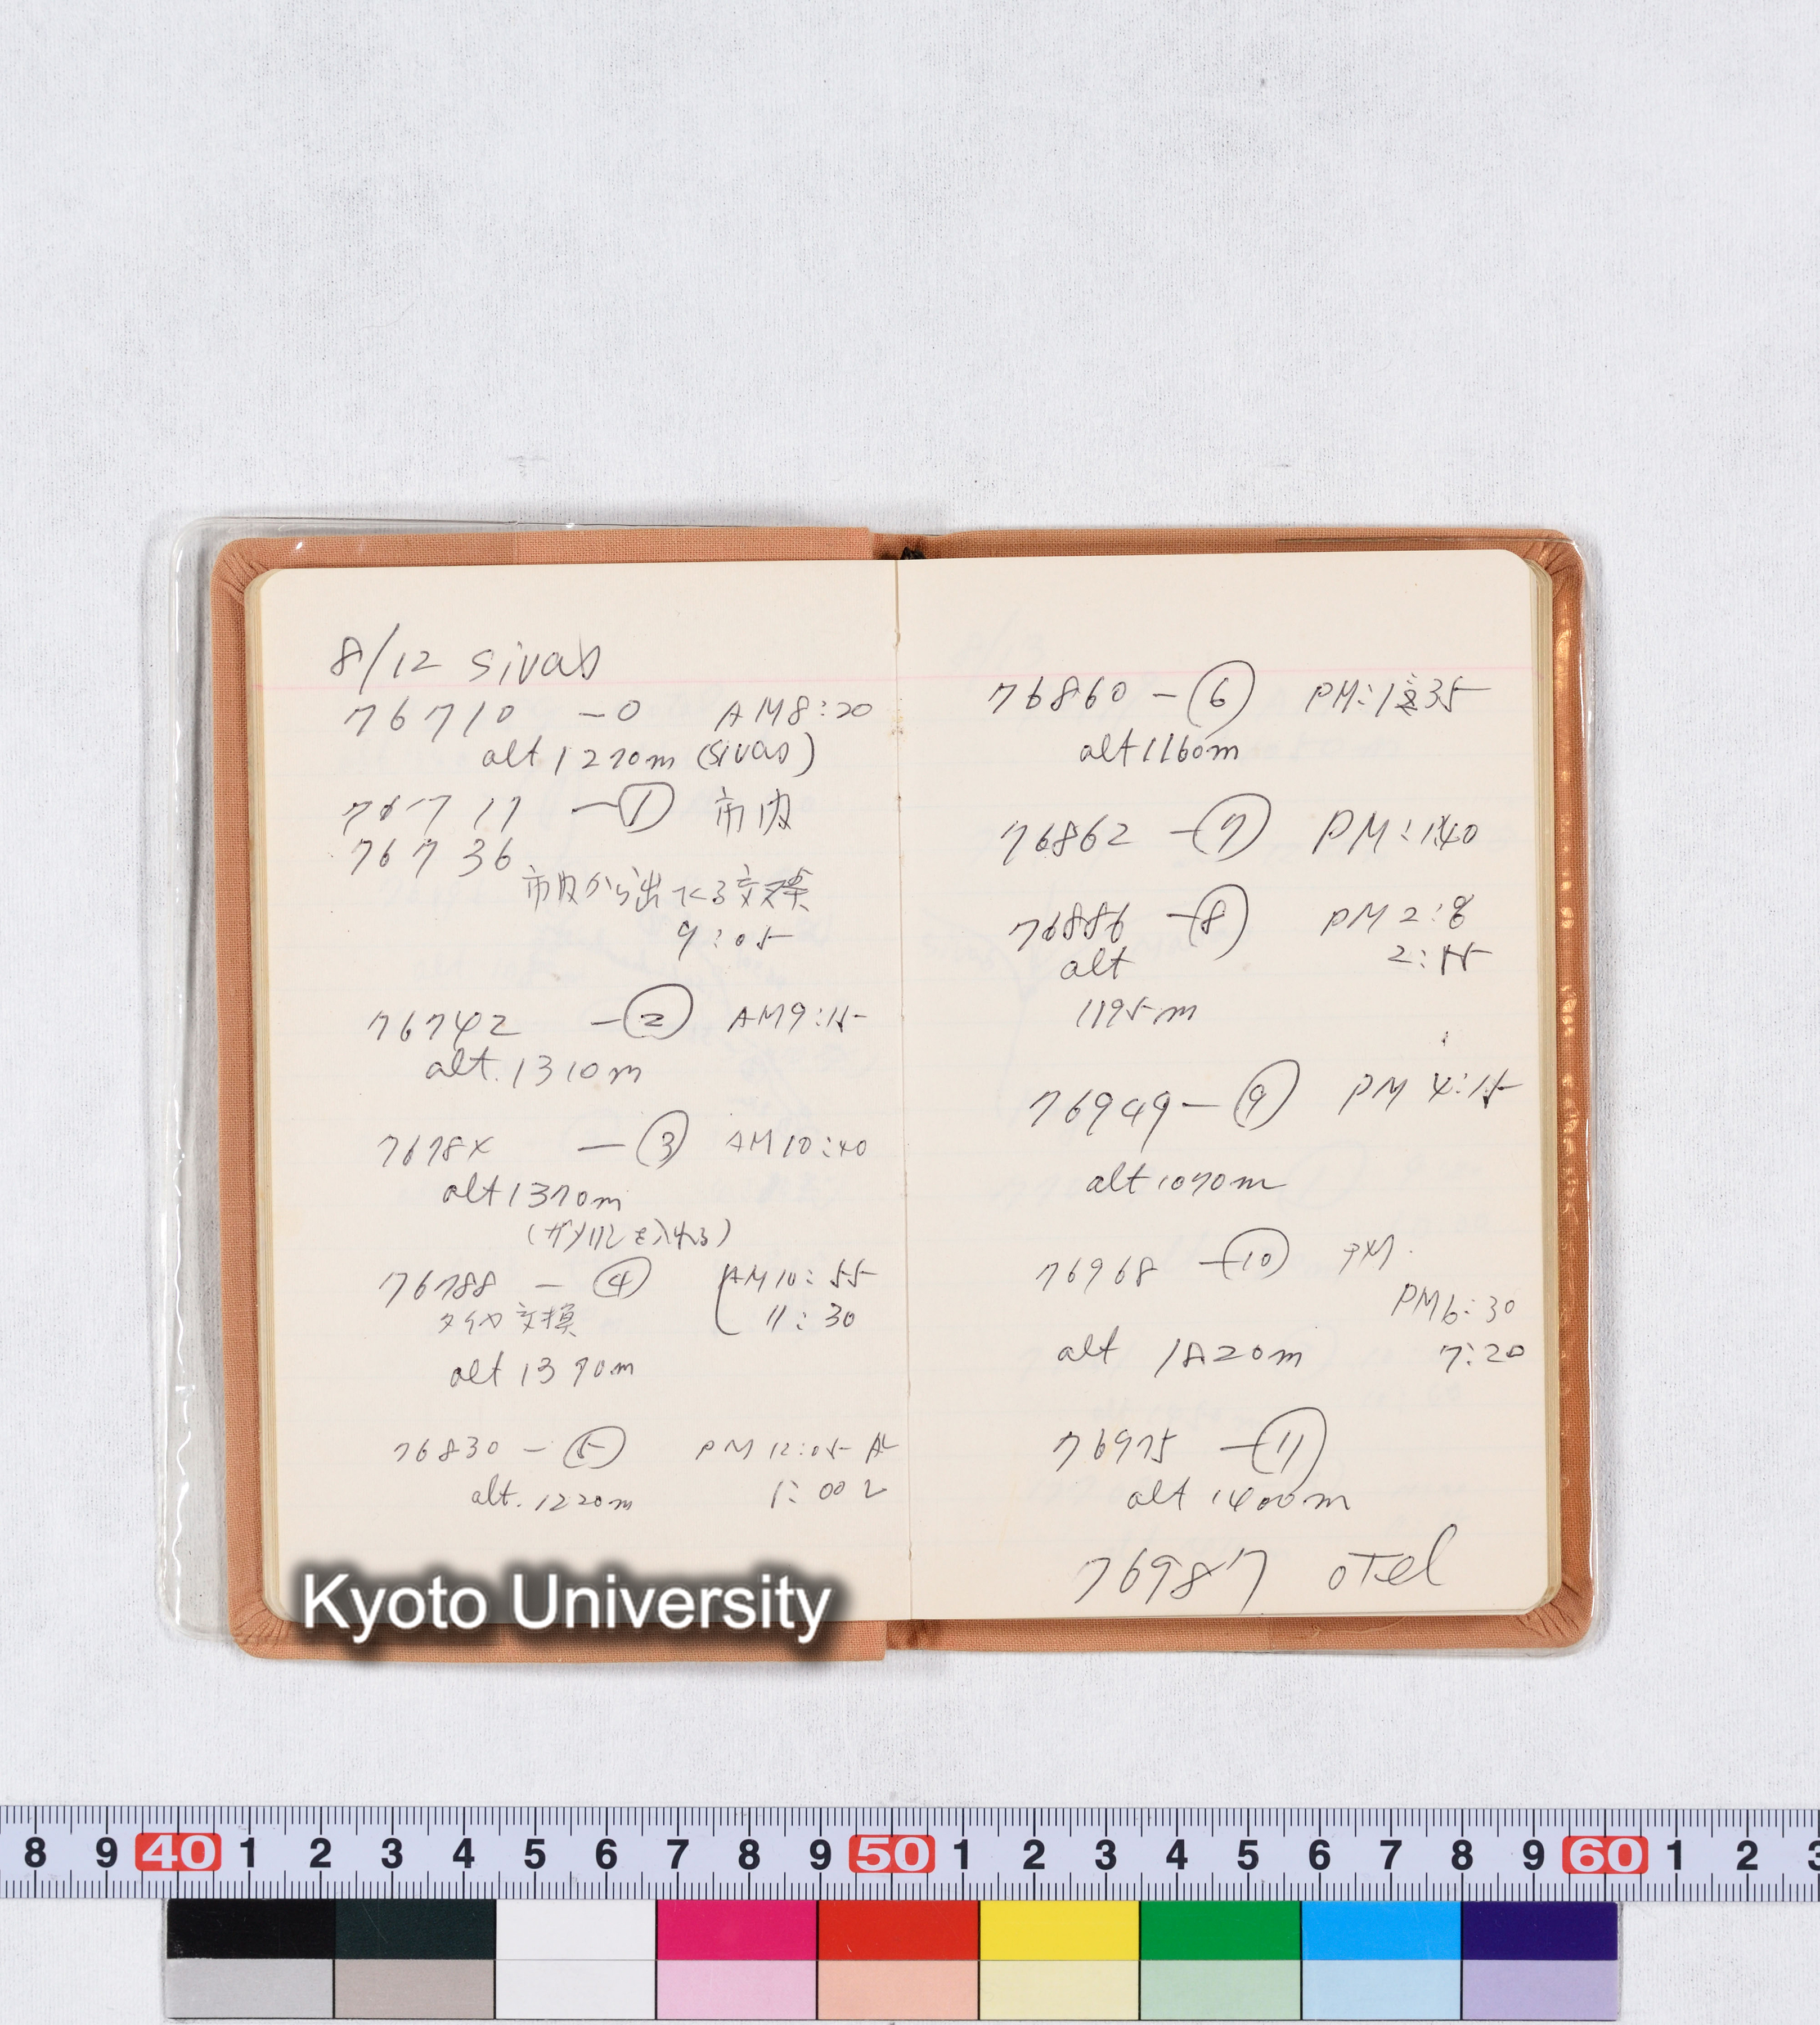 8/12 sivas
76710 -0 AM8:20
alt 1270m (sivas)
76717 -① 市内
76736
市内から出てくる交差
9:05
76742 -② AM9:15
alt.1310m
7678x -③ AM10:40
alt1370m
(ガソリンを入れる)
76788 -④ AM10:55
タイヤ交換 11:30
alt 1370m
76830 -⑤ PM 12:05
alt. 1220m 1:00
76860 -⑥ PM:1:35
alt1160m
76862 -⑦ PM:1:40
76886 -⑧ PM2:8
alt 2:15
1195m
76949-⑨ PM 4:15
alt1070m
76968 -⑩
PM6:30
alt 1820m 7:20
76975 -⑪
alt 1400m
76987 oTel
Kyoto University
8 9 40 1 2 3 4 5 6 7 8 9 50 1 2 3 4 5 6 7 8 9 60 1 2 3